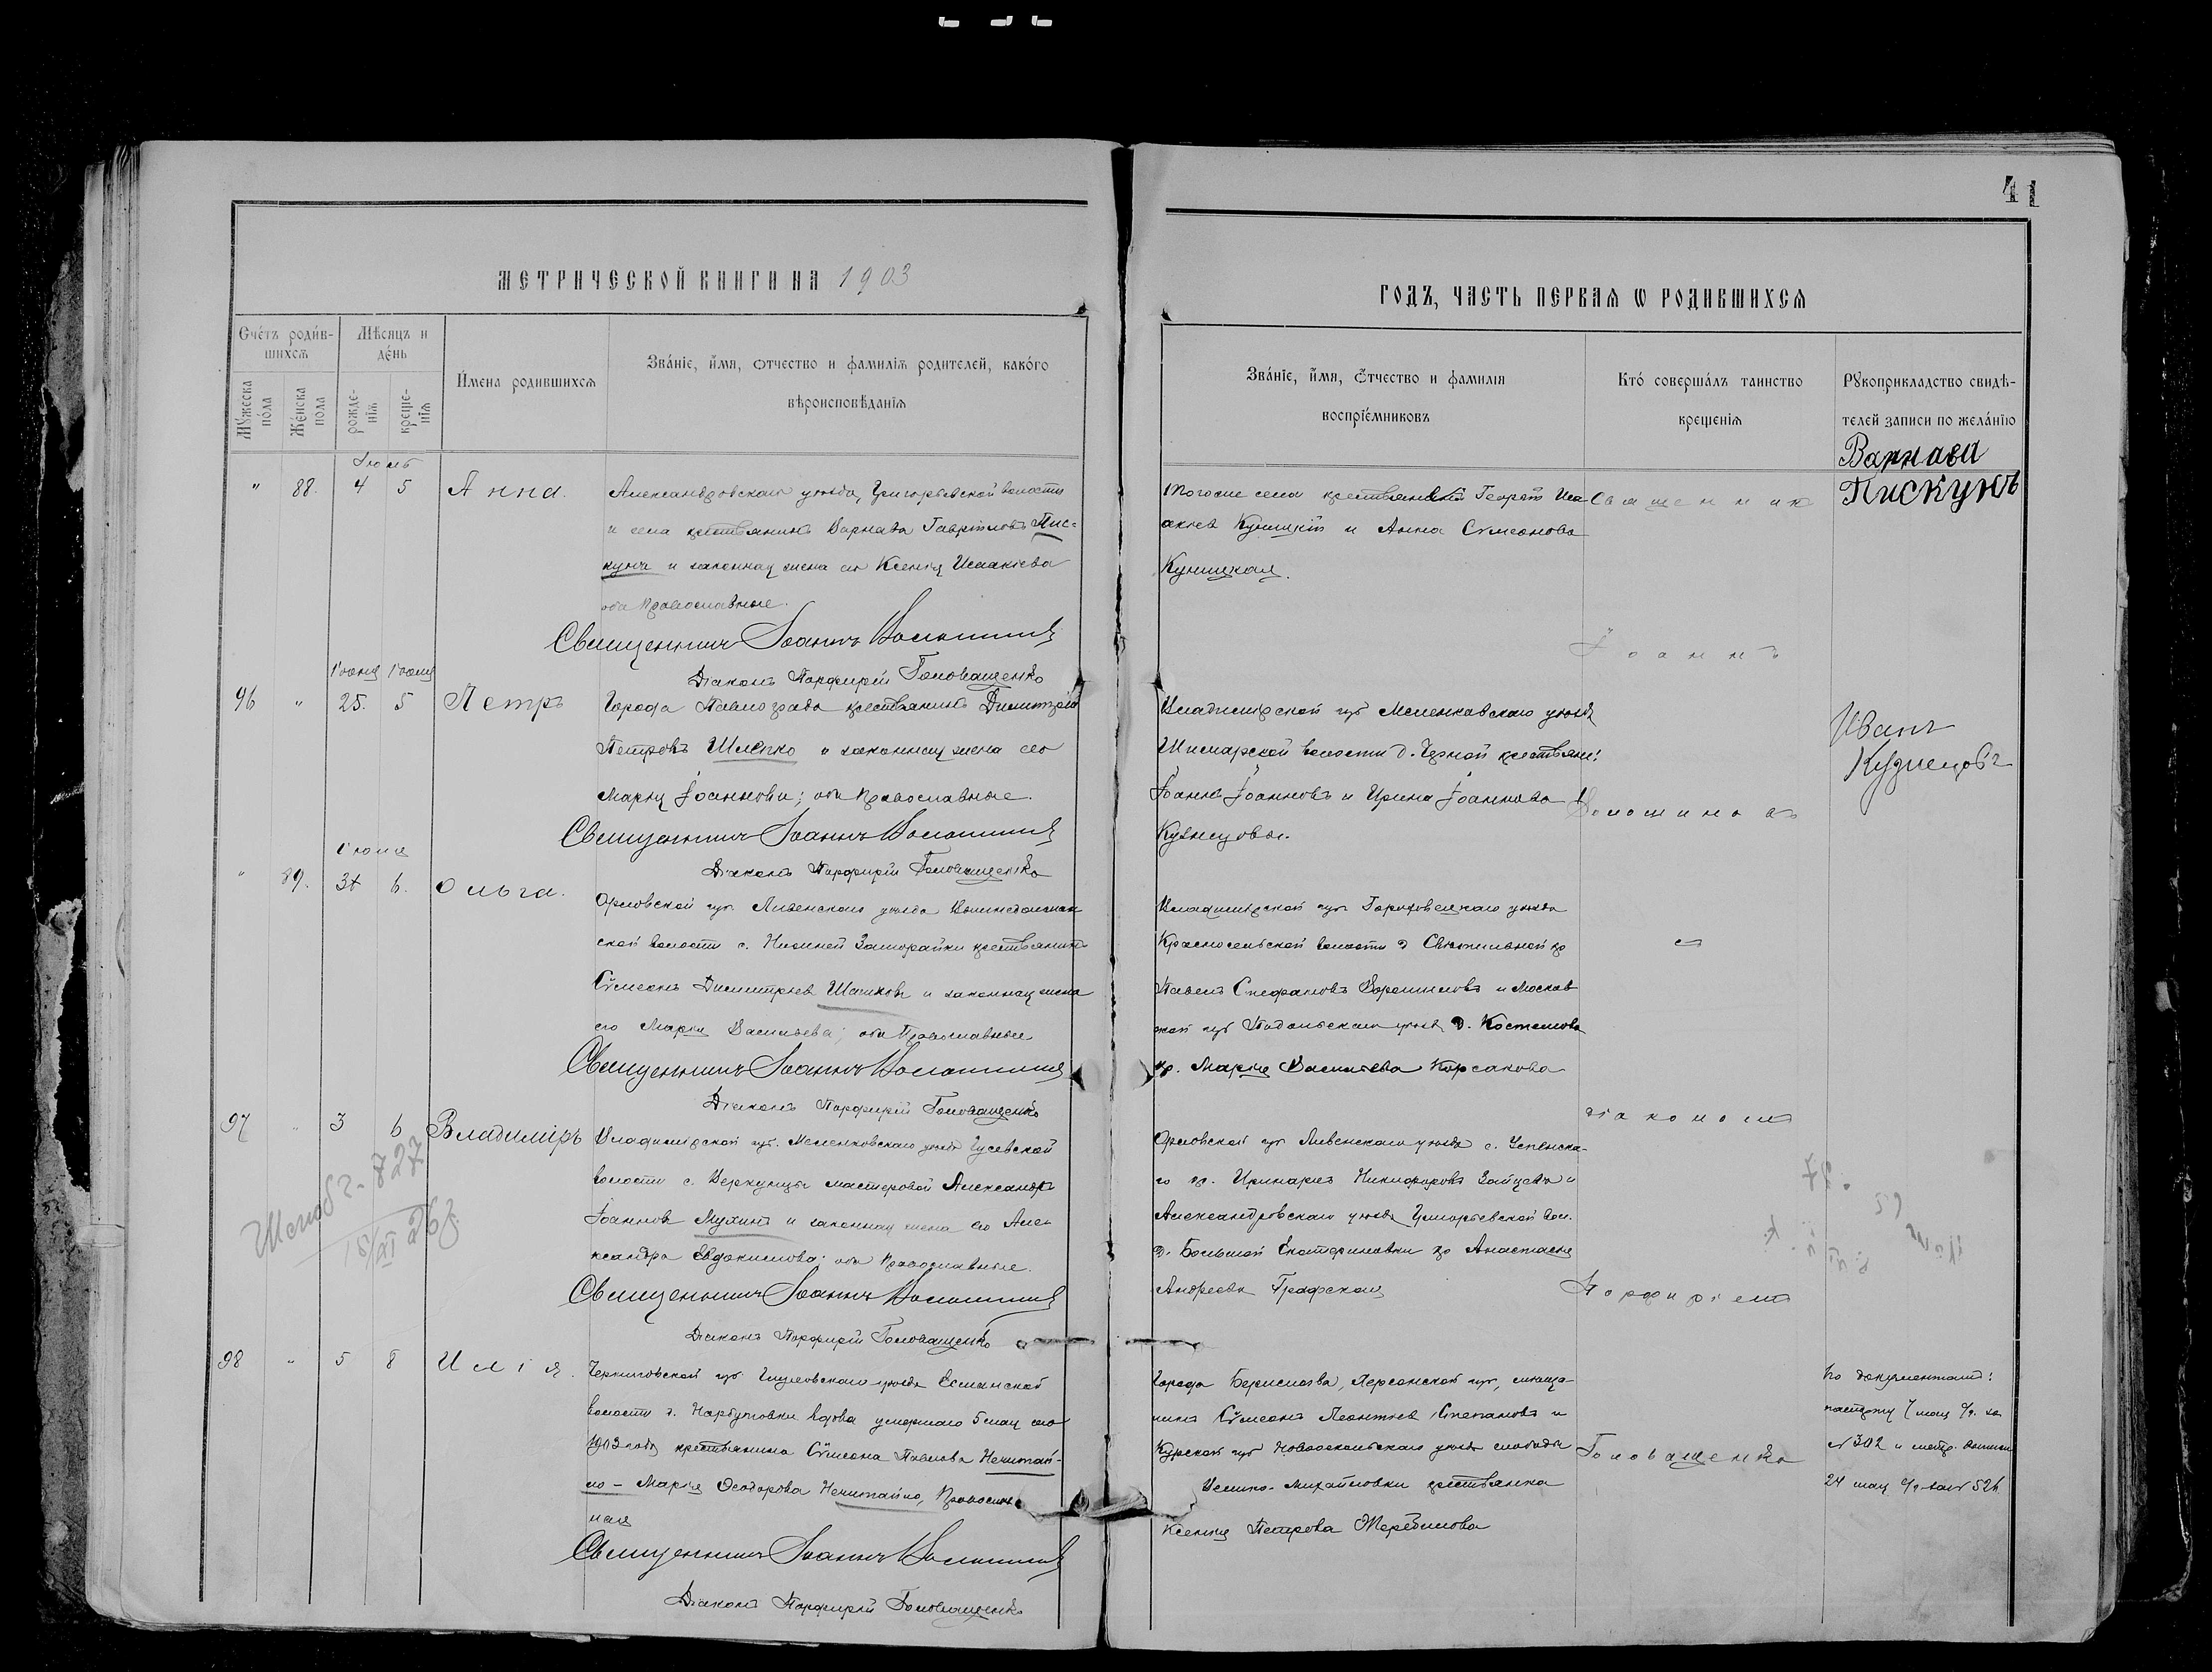 41
МЕТРИЧЕСКОЙ КНИГИ НА 1903
ГОДЪ, ЧАСТЬ ПЕРВАЯ Ѡ РОДИВШИХСЯ
Счетъ родив-
шихся
Мѣсяцъ и
день
Мужеска
пола
Женска
пола
рожде-
нія
креще-
нія
Имена родившихся
Званіе, имя, ѻтчество и фамилія родителей, какого
вѣроисповѣданія
Званіе, имя, ѻтчество и фамилія
воспріемниковъ
Кто совершалъ таинство
крещенія
Рукоприкладство свидѣ-
телей записи по желанію
" 88. 4 5 Анна.
Александровскаго уѣзда, Григорьевской волости
и села крестьянинъ Варнава Гавріиловъ Пис-
кунъ и законная жена его Ксенія Исаакіева
оба Православные.
Священникъ Іоаннъ Волошиновъ
Діаконъ Порфирій Головащенко
Того же села крестьянинъ Георгій Иса-
акіевъ Куницкій и Анна Сѵмеонова
Куницкая.
Священникъ
Іоаннъ
Варнава
Пискунъ
Іюня Іюня
96 " 25. 5 Петръ
Города Павлограда крестьянинъ Димитрій
Петровъ Шлепко и законная жена его
Марія Іоаннова; оба Православные.
Священникъ Іоаннъ Волошиновъ
Діаконъ Порфирій Головащенко
Владимірской губ. Меленковскаго уѣзда
волости д. Черной крестьяне:
Іоаннъ Іоанновъ и Ирина Іоаннова
Кузнецовы.
Волошиновъ
Иванъ
Кузнецовъ
Іюня
" 89. 6. Ольга.
Орловской губ. Ливенскаго уѣзда
ской волости с. Нижней крестьянинъ
Сѵмеонъ Димитріевъ Шашковъ и законная жена
его Марія Васильева; оба Православные
Священникъ Іоаннъ Волошиновъ
Діаконъ Порфирій Головащенко
Владимірской губ. Гороховецкаго уѣзда
Красносельской волости д. кр.
Павелъ Стефановъ и Москов
ской губ. Подольскаго уѣзда д.
кр. Марія Васильева Корсакова
съ
97 " 3 6 Владиміръ
Владимірской губ. Меленковскаго уѣзда Гусевской
волости с. Веркутца мастеровой Александръ
Іоанновъ Мухинъ и законная жена его Але-
ксандра Евдокимова; оба Православные.
Священникъ Іоаннъ Волошиновъ
Діаконъ Порфирій Головащенко
Орловской губ. Ливенскаго уѣзда с. Успенска-
го кр. Иринархъ Никифоровъ Зайцевъ и
Александровскаго уѣзда Григорьевской вол.
д. Большой Екатериновки кр. Анастасія
Андреева Графская
діакономъ
Порфиріемъ
98 " 5 8 Илія.
Черниговской губ. Глуховскаго уѣзда Есманской
волости д. Нарбутовки вдова умершаго 5 мая сего
1903 года крестьянина Сѵмеона Павлова Нечитай-
ло - Марія Ѳеодорова Нечитайло, Православ-
ная
Священникъ Іоаннъ Волошиновъ
Діаконъ Порфирій Головащенко
Города Берислава, Херсонской губ., мѣща-
нинъ Сѵмеонъ Леонтьевъ Степановъ и
Курской губ. Новооскольскаго уѣзда слободы
Михайловки крестьянка
Ксенія Петрова
Головащенко
по документамъ:
№ 302 и метр.
24 мая